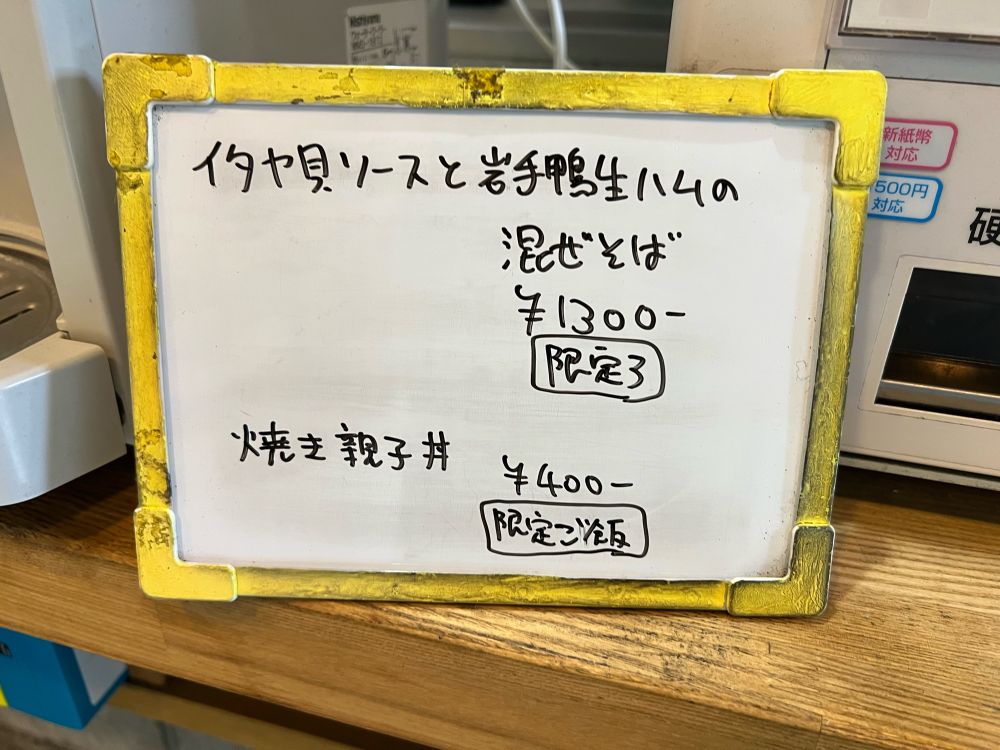 イタヤ貝ソースと岩手鴨生ハムの
混ぜそば
¥1300-
限定3
焼き親子丼
¥400-
限定ご飯
新紙幣
対応
500円
対応
硬